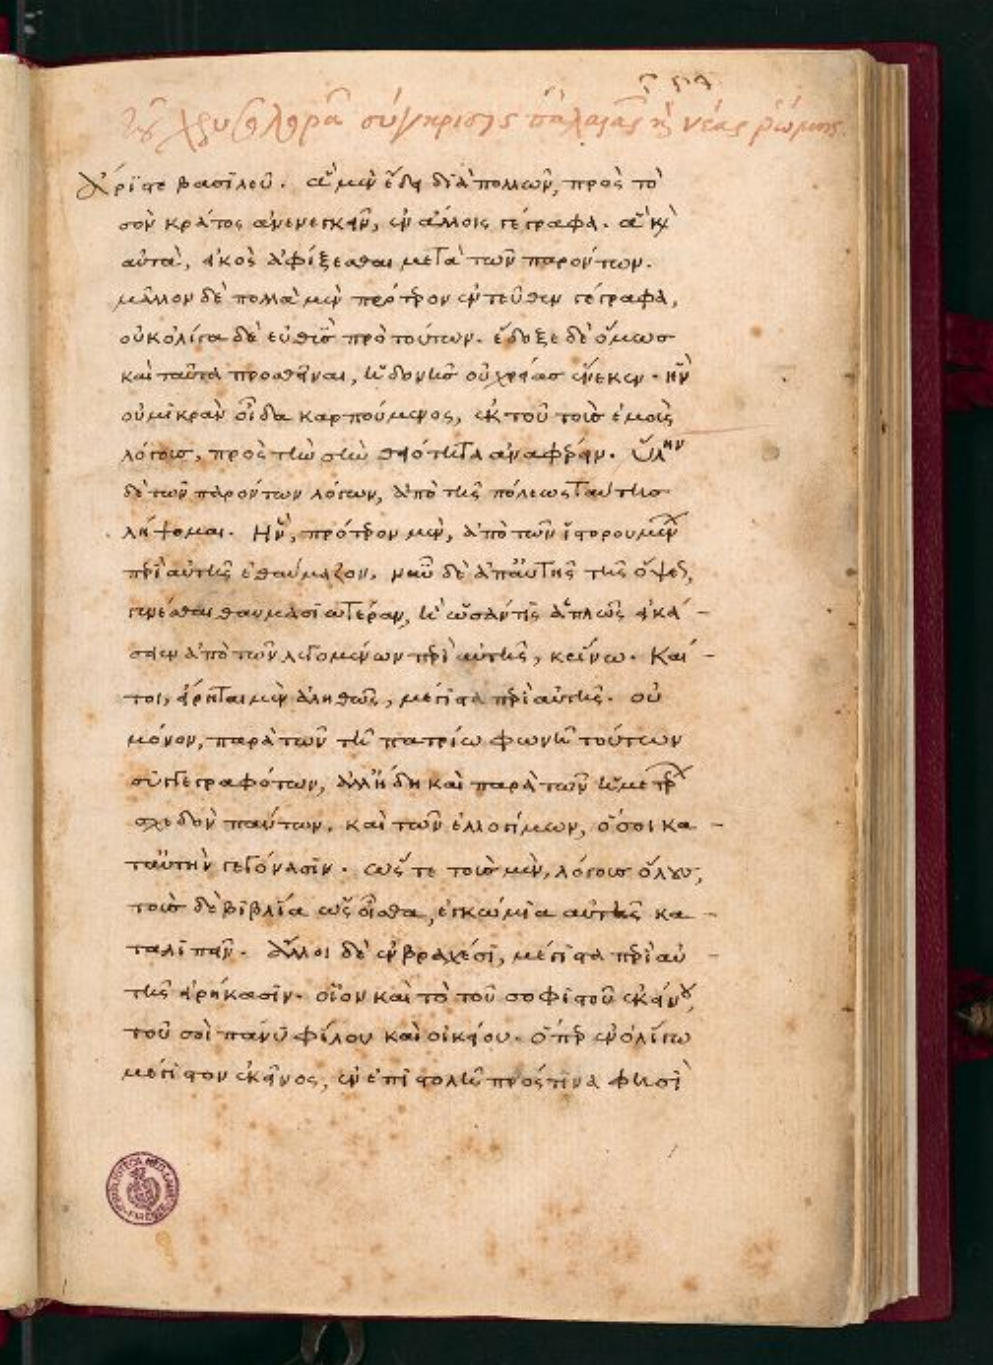 τοῦ χρυσολωρᾶ σύγκρισις παλαιᾶς κ(αὶ) νέας ῥώμης
Ἄριστε βασιλεῦ. ἃ μὲν ἔδει διὰ πολλῶν, πρὸς τὸ
σὸν κράτος ἀνενεγκεῖν, ἐν ἄλλοις γέγραφα. ἃ κ(αὶ)
αὐτὰ, εἰκὸς ἀφίξεσθαι μετὰ τῶν παρόντων.
μᾶλλον δὲ πολλὰ μὲν πρότερον ἐντεῦθεν γέγραφα,
οὐκ ὀλίγα δὲ εὐθὺς πρὸ τούτων. ἔδοξε δὲ ὅμως
καὶ ταῦτα προσθεῖναι, ἡδονῆς οὐ χρείας ἕνεκεν. ἣν
οὐ μικρὰν οἶδα καρπούμενος, ἐκ τοῦ τοῖς ἐμοῖς
λόγοις, πρὸς τὴν σὴν θειότητα ἀναφέρειν. ὕλην
δὲ τῶν παρόντων λόγων, ἀπὸ τῆς πόλεως ταύτης
λήψομαι. Ἣν, πρότερον μὲν, ἀπὸ τῶν ἱστορουμένων
περὶ αὐτῆς ἐθαύμαζον. νῦν δὲ ἀπ' αὐτῆς τῆς ὄψεως,
γενέσθαι θαυμασιωτέραν, ἢ ὡς ἄν τις ἁπλῶς εἰκά-
σειεν ἀπὸ τῶν λεγομένων περὶ αὐτῆς, κρίνω. Καί-
τοι, εἴρηται μὲν ἀληθῶς, μέγιστα περὶ αὐτῆς. οὐ
μόνον, παρὰ τῶν τῇ πατρίῳ φωνῇ τούτων
συγγεγραφότων, ἀλλ' ἤδη καὶ παρὰ τῶν ἡμετέρων
σχεδὸν πάντων, καὶ τῶν ἐλλογίμων, ὅσοι κα-
ταύτὴν γεγόνασιν. ὥστε τοὺς μὲν, λόγους ὅλους,
τοὺς δὲ βιβλία ὡς οἶσθα, ἐγκώμια αὐτῆς κα-
ταλιπεῖν. Ἄλλοι δὲ ἐν βραχέσι, μέγιστα περὶ αὐ-
τῆς εἰρήκασιν. οἷον καὶ τὸ τοῦ σοφιστοῦ ἐκείνου,
τοῦ σοὶ πάνυ φίλου καὶ οἰκείου. ὅπερ ἐν ὀλίγῳ
μέγιστον ἐκεῖνος, ἐν ἐπιστολῇ πρός τινα φησὶ